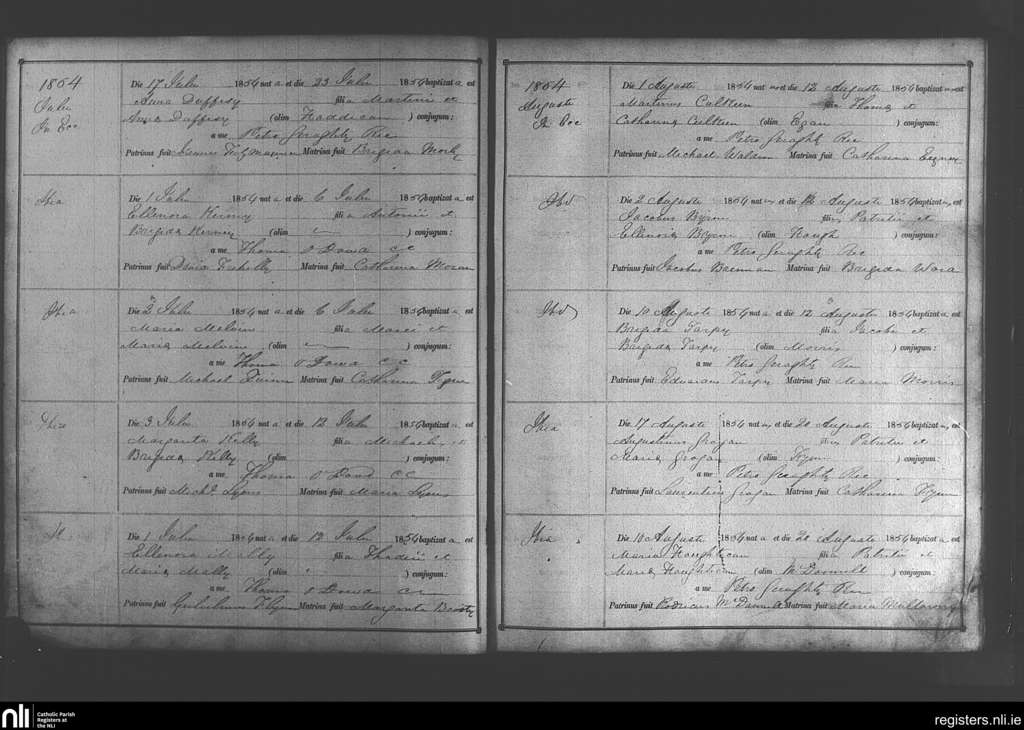 1864
Julii
In Ecc
Die 17 Julii 1864 nat a et die 23 Julii 1864 baptizat a est
Anna Duffesy fili a Martini et
Anna Duffesy (olim Haddican ) conjugum:
a me Petro Geraghty Rec
Patrinus fuit Joannes Fitzmaurice Matrina fuit Brigida Morly
Ibia
Die 1 Julii 1864 nat a et die 6 Julii 1864 baptizat a est
Ellenora Kenny fili a Antonii et
Brigida Kenny (olim ) conjugum:
a me Thoma O Dowd CC
Patrinus fuit Matrina fuit Catharina Moran
Ibia
Die 2 Julii 1864 nat a et die 6 Julii 1864 baptizat a est
Maria Melvin fili a Marci et
Maria Melvin (olim ) conjugum:
a me Thoma O Dowd CC
Patrinus fuit Michael Matrina fuit Catharina
Die 3 Julii 1864 nat a et die 12 Julii 1864 baptizat a est
Margarita Kelly fili a Michaelis et
Brigida Kelly (olim ) conjugum:
a me Thoma O Dowd CC
Patrinus fuit Michl Lyons Matrina fuit Maria Lyons
Die 1 Julii 1864 nat a et die 12 Julii 1864 baptizat a est
Ellenora Mally fili a Thadii et
Maria Mally (olim ) conjugum:
a me Thoma O Dowd CC
Patrinus fuit Gulielmus Flynn Matrina fuit Margarita
1864
Augusti
In Ecc
Die 1 Augusti 1864 nat us et die 12 Augusti 1864 baptizat us est
Martinus Culkeen Thoma et
Catharina Culkeen (olim Egan ) conjugum:
a me Petro Geraghty Rec
Patrinus fuit Michael Waldron Matrina fuit Catharina
Ibid
Die 2 Augusti 1864 nat us et die 12 Augusti 1864 baptizat us est
Jacobus Byrne fili us Patritii et
Ellenora Byrne (olim Hough ) conjugum:
a me Petro Geraghty Rec
Patrinus fuit Jacobus Brennan Matrina fuit Brigida Ward
Ibid
Die 10 Augusti 1864 nat a et die 12 Augusti 1864 baptizat a est
Brigida Tarpy fili a Jacobi et
Brigida Tarpy (olim Morris ) conjugum:
a me Petro Geraghty Rec
Patrinus fuit Eduardus Tarpy Matrina fuit Maria Morris
Ibia
Die 17 Augusti 1864 nat us et die 20 Augusti 1864 baptizat us est
Augustinus Grogan fili us Patritii et
Maria Grogan (olim Flynn ) conjugum:
a me Petro Geraghty Rec
Patrinus fuit Laurentius Grogan Matrina fuit Catharina Flynn
Ibia
Die 10 Augusti 1864 nat a et die 20 Augusti 1864 baptizat a est
Maria Haughtican fili a Patritii et
Maria Haughtican (olim McDonnell ) conjugum:
a me Petro Geraghty Rec
Patrinus fuit Matrina fuit Maria
nli
Catholic Parish
Registers at
the NLI
registers.nli.ie